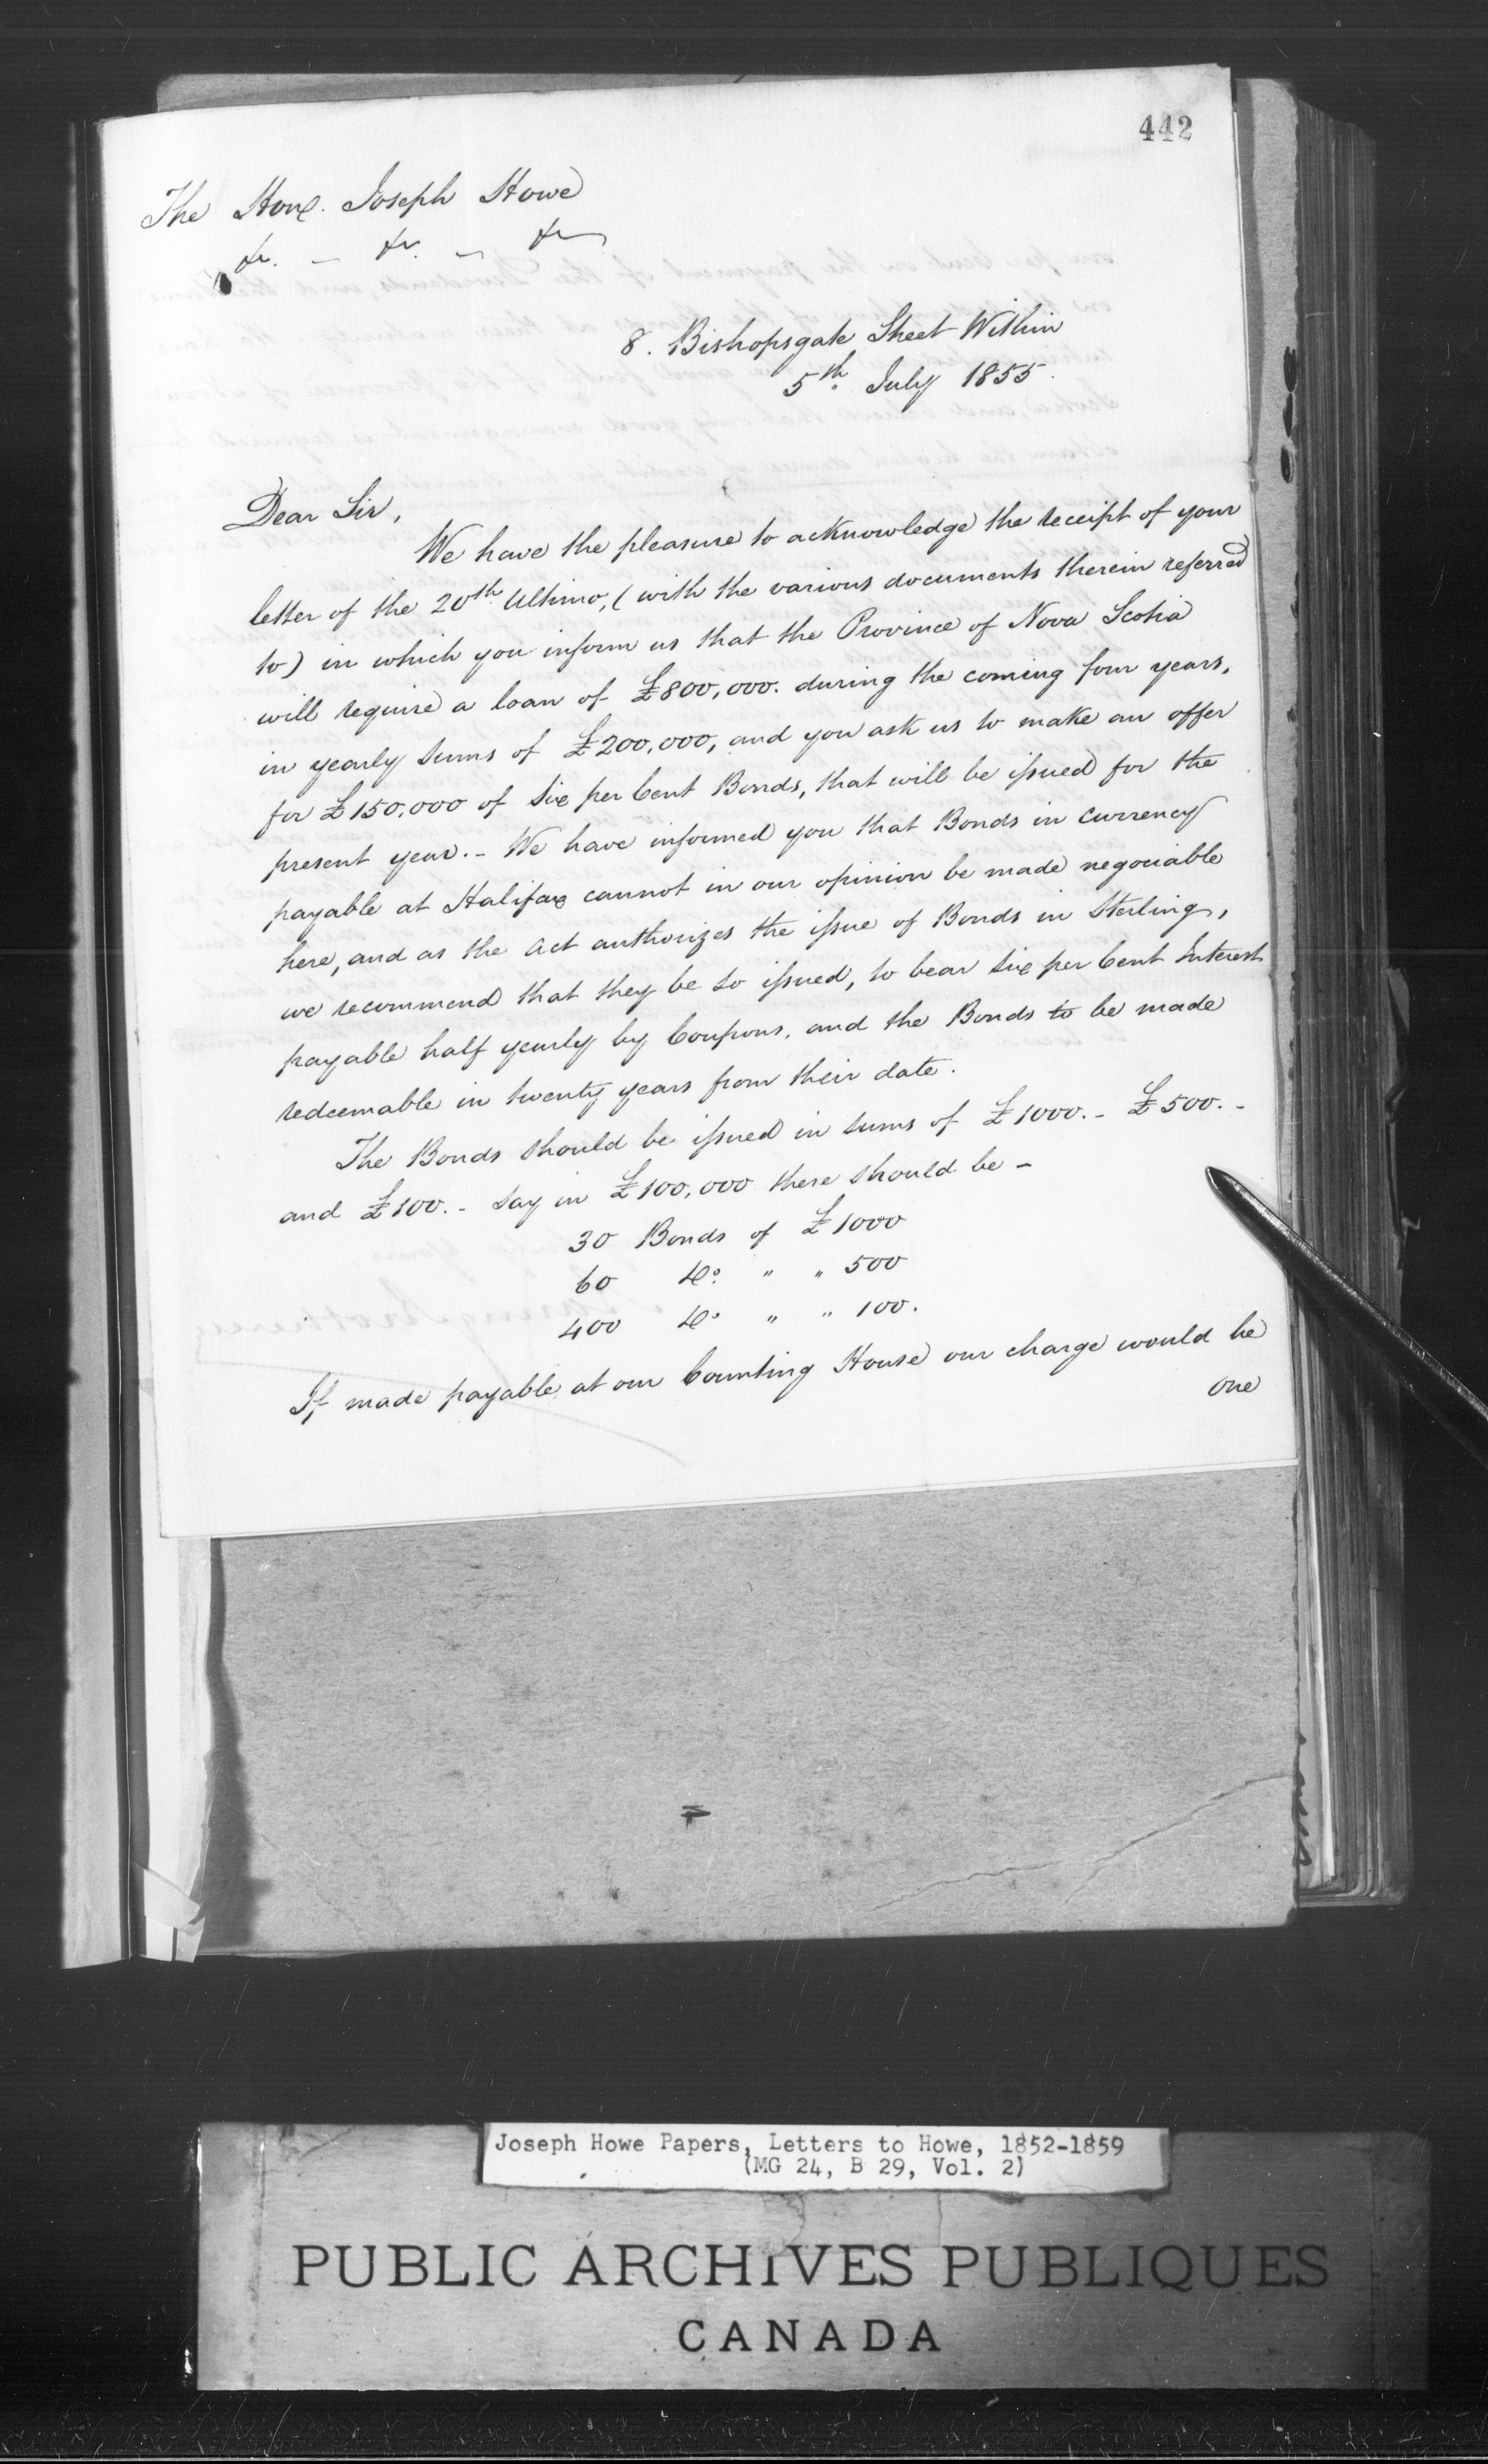 442
The Honl. Joseph Howe
&c. – &c. – &c
8. Bishopsgate Street Within
5th. July 1855.
Dear Sir,
We have the pleasure to acknowledge the receipt of your
letter of the 20th Ultimo, (with the various documents therein referred
to) in which you inform us that the Province of Nova Scotia
will require a loan of £800,000. during the coming four years,
in yearly sums of £200,000, and you ask us to make an offer
for £150,000 of Six per Cent Bonds, that will be issued for the
present year. – We have informed you that Bonds in Currency
payable at Halifax cannot in our opinion be made negociable
here, and as the Act authorizes the issue of Bonds in Sterling,
we recommend that they be so issued, to bear six per Cent Interest
payable half yearly by Coupons, and the Bonds to be made
redeemable in twenty years from their date.
The Bonds should be issued in sums of £1000. – £500. –
and £100. – Say in £100,000 there should be –
30 Bonds of £1000
60 Do. " " 500
400 Do " " 100.
If made payable at our Counting House our charge would be
one
Joseph Howe Papers, Letters to Howe, 1852-1859
(MG 24, B 29, Vol. 2)
PUBLIC ARCHIVES PUBLIQUES
CANADA